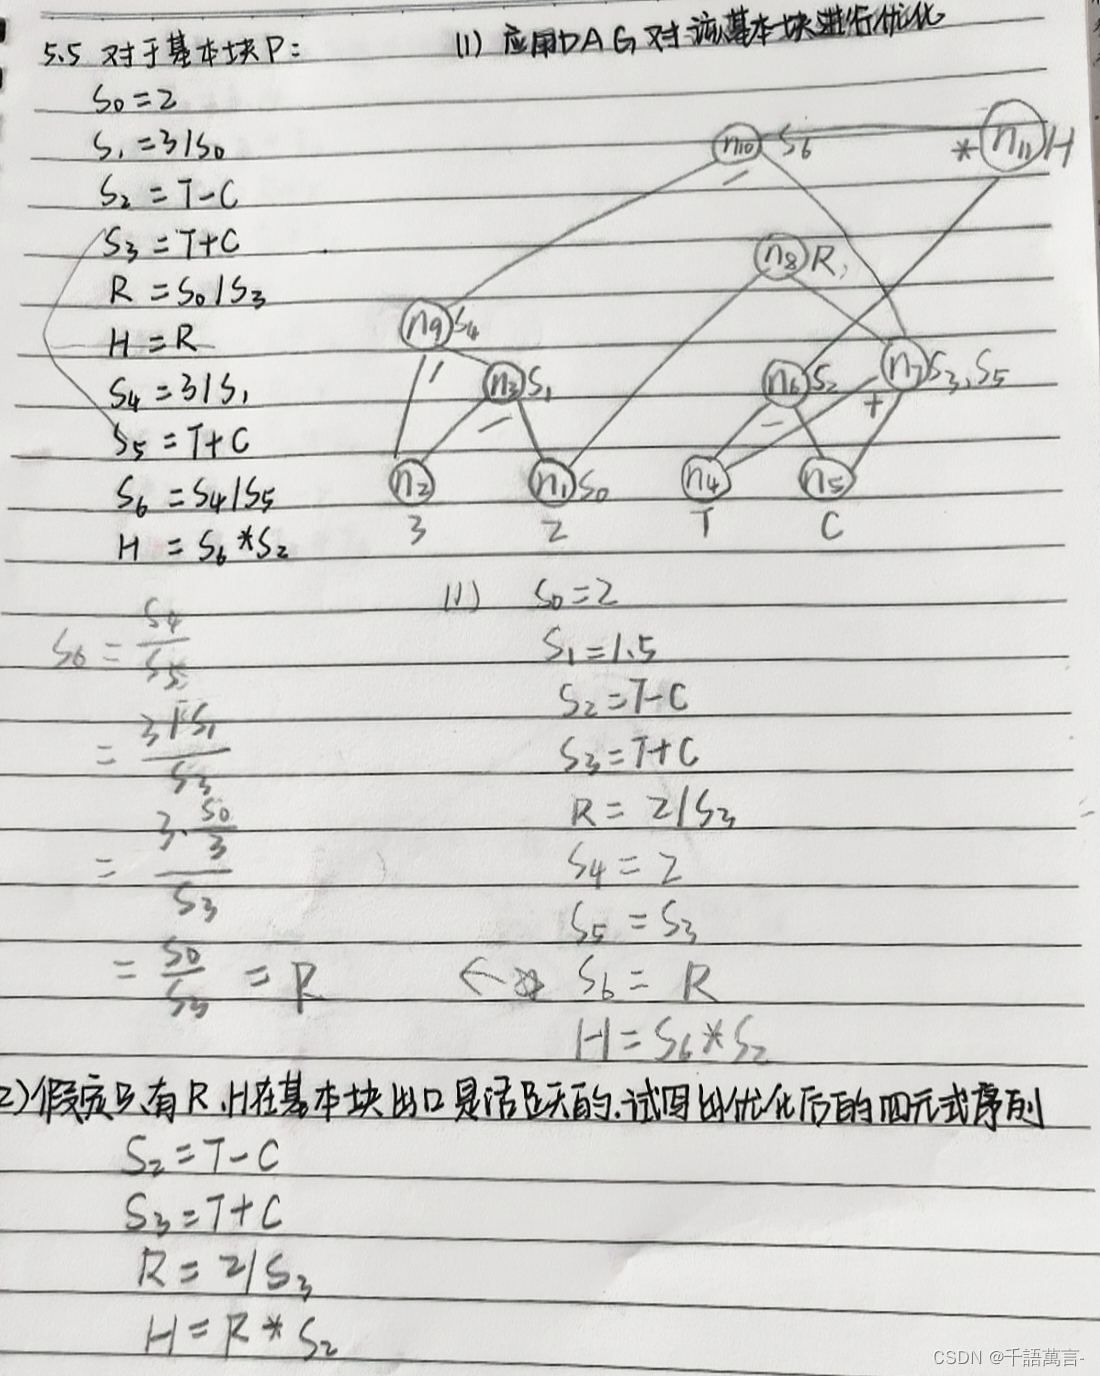 5.5 对于基本块P:
(1) 应用DAG对该基本块进行优化
S0=2
S1=3/S0
S2=T-C
S3=T+C
R=S0/S3
H=R
S4=3/S1
S5=T+C
S6=S4/S5
H=S6*S2
n10 S6
/
* n11 H
n8 R,
n9 S4
/
n3 S1
/
n6 S2
-
n7 S3,S5
+
n2
n1 S0
n4
n5
3
2
T
C
S6=S4/S5
=3/S1/S3
=3·S0/3/S3
=S0/S3=R
(1) S0=2
S1=1.5
S2=T-C
S3=T+C
R=2/S3
S4=2
S5=S3
S6=R
H=S6*S2
2)假定只有R,H在基本块出口是活跃的,试写出优化后的四元式序列
S2=T-C
S3=T+C
R=2/S3
H=R*S2
CSDN @千語萬言-